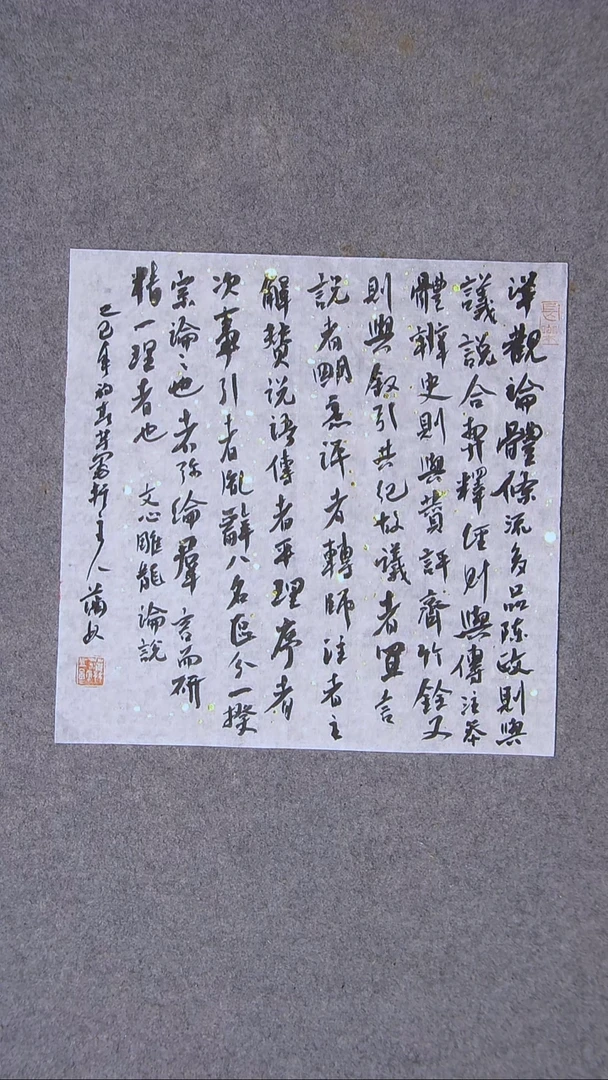 詳觀論體條流多品陳政則與
議說合契釋經則與傳注參
體辨史則與贊評齊行銓文
則與叙引共紀故議者宜言
說者明意評者轉師注者主
解贊说語傳者平理序者
次事引者胤辭八名區分一揆
宗論〻也者弥綸羣言而研
精一理者也 文心雕龍論說
乙巳年初春主人蒲
長樂